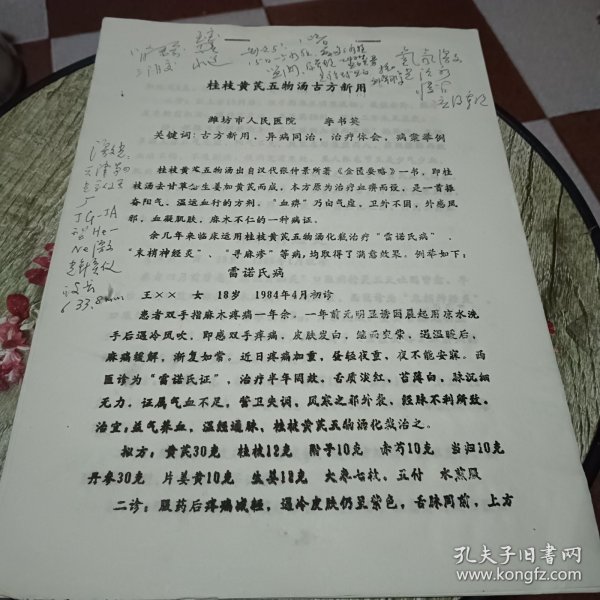 桂枝黄芪五物汤古方新用
潍坊市人民医院 李书英
关键词:古方新用,异病同治,治疗体会,病案举例
桂枝黄芪五物汤出自汉代张仲景所著《金匮要略》一书,即桂
枝汤去甘草倍生姜加黄芪而成,本方原为治疗血痹而设,是一首振
奋阳气,温运血行的方剂。"血痹"乃由气虚,卫外不固,外感风
邪,血凝肌肤,麻木不仁的一种病证。
余几年来临床运用桂枝黄芪五物汤化裁治疗"雷诺氏病"、
"末梢神经炎"、"寻麻疹"等病,均取得了满意效果。例举如下:
雷诺氏病
王×× 女 18岁 1984年4月初诊
患者双手指麻木疼痛一年余。一年前无明显诱因晨起用凉水洗
手后遇冷风吹,即感双手疼痛,皮肤发白,继而变紫,遇温暖后,
麻痛缓解,渐复如常。近日疼痛加重,昼轻夜重,夜不能安寐。西
医诊为"雷诺氏证",治疗半年罔效,舌质淡红,苔薄白,脉沉细
无力。证属气血不足,营卫失调,风寒之邪外袭,经脉不利所致。
治宜:益气养血,温经通脉,桂枝黄芪五物汤化裁治之。
拟方:黄芪30克 桂枝12克 附子10克 赤芍10克 当归10克
丹参30克 片姜黄10克 生姜12克 大枣七枚,五付 水煎服
二诊:服药后疼痛减轻,遇冷皮肤仍呈紫色,舌脉同前,上方
JG-IA
型He-
Ne激
孔夫子旧书网
www.kongfz.com